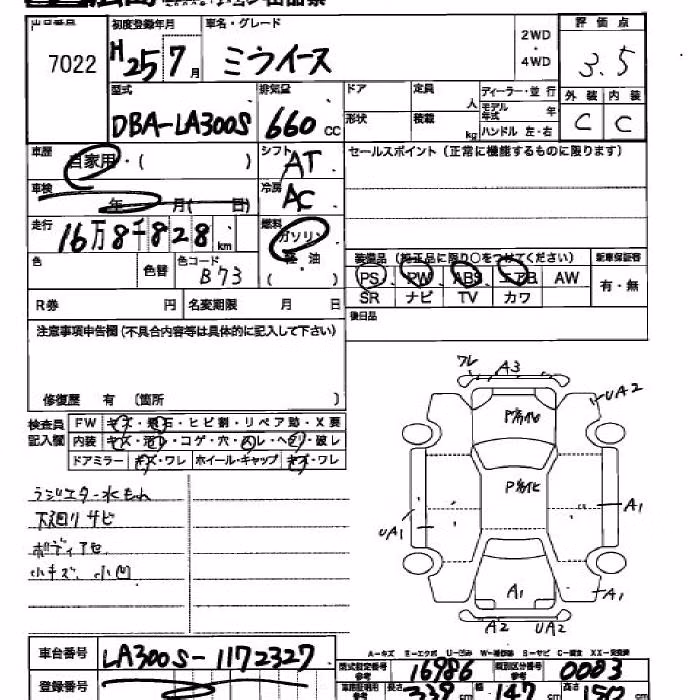 出品番号 初度登録年月 車名・グレード 評価点
7022 H25 7月 ミライース 2WD・4WD 3.5
型式 排気量 ドア 定員 人 ディーラー・並行 外装 内装
DBA-LA300S 660cc 形状 積載 kg モデル年式 年 C C
ハンドル 左・右
車歴 自家用・( ) シフト AT セールスポイント(正常に機能するものに限ります)
車検 年 月( 日) 冷房 AC
走行 16万8千828km 燃料 ガソリン
軽油
( )
色 色替 色コード B73
装備品(純正品に限り○をつけてください) 新車保証書
PS PW ABS エアB AW 有・無
SR ナビ TV カワ
R券 円 名変期限 月 日 後日品
注意事項申告欄(不具合内容等は具体的に記入して下さい)
修復歴 有 (箇所 )
検査員記入欄 FW キズ・飛石・ヒビ割・リペア跡・X要
内装 キズ・汚レ・コゲ・穴・スレ・ヘタリ・破レ
ドアミラー キズ・ワレ ホイール・キャップ キズ・ワレ
ラジエター水もれ
下廻りサビ
ボディアセ
小キズ、小凹
ワレ A3
UA2
P劣化
P劣化
UA1 A1
A1 A1
A2 UA2
A-キズ E-エクボ U-凹み W-補修跡 S-サビ C-腐食 XX-交換済
車台番号 LA300S-1172327
型式指定番号 参考 16986 類別区分番号 参考 0003
登録番号
車検証明用 参考 長さ 339cm 幅 147cm 高さ 150cm